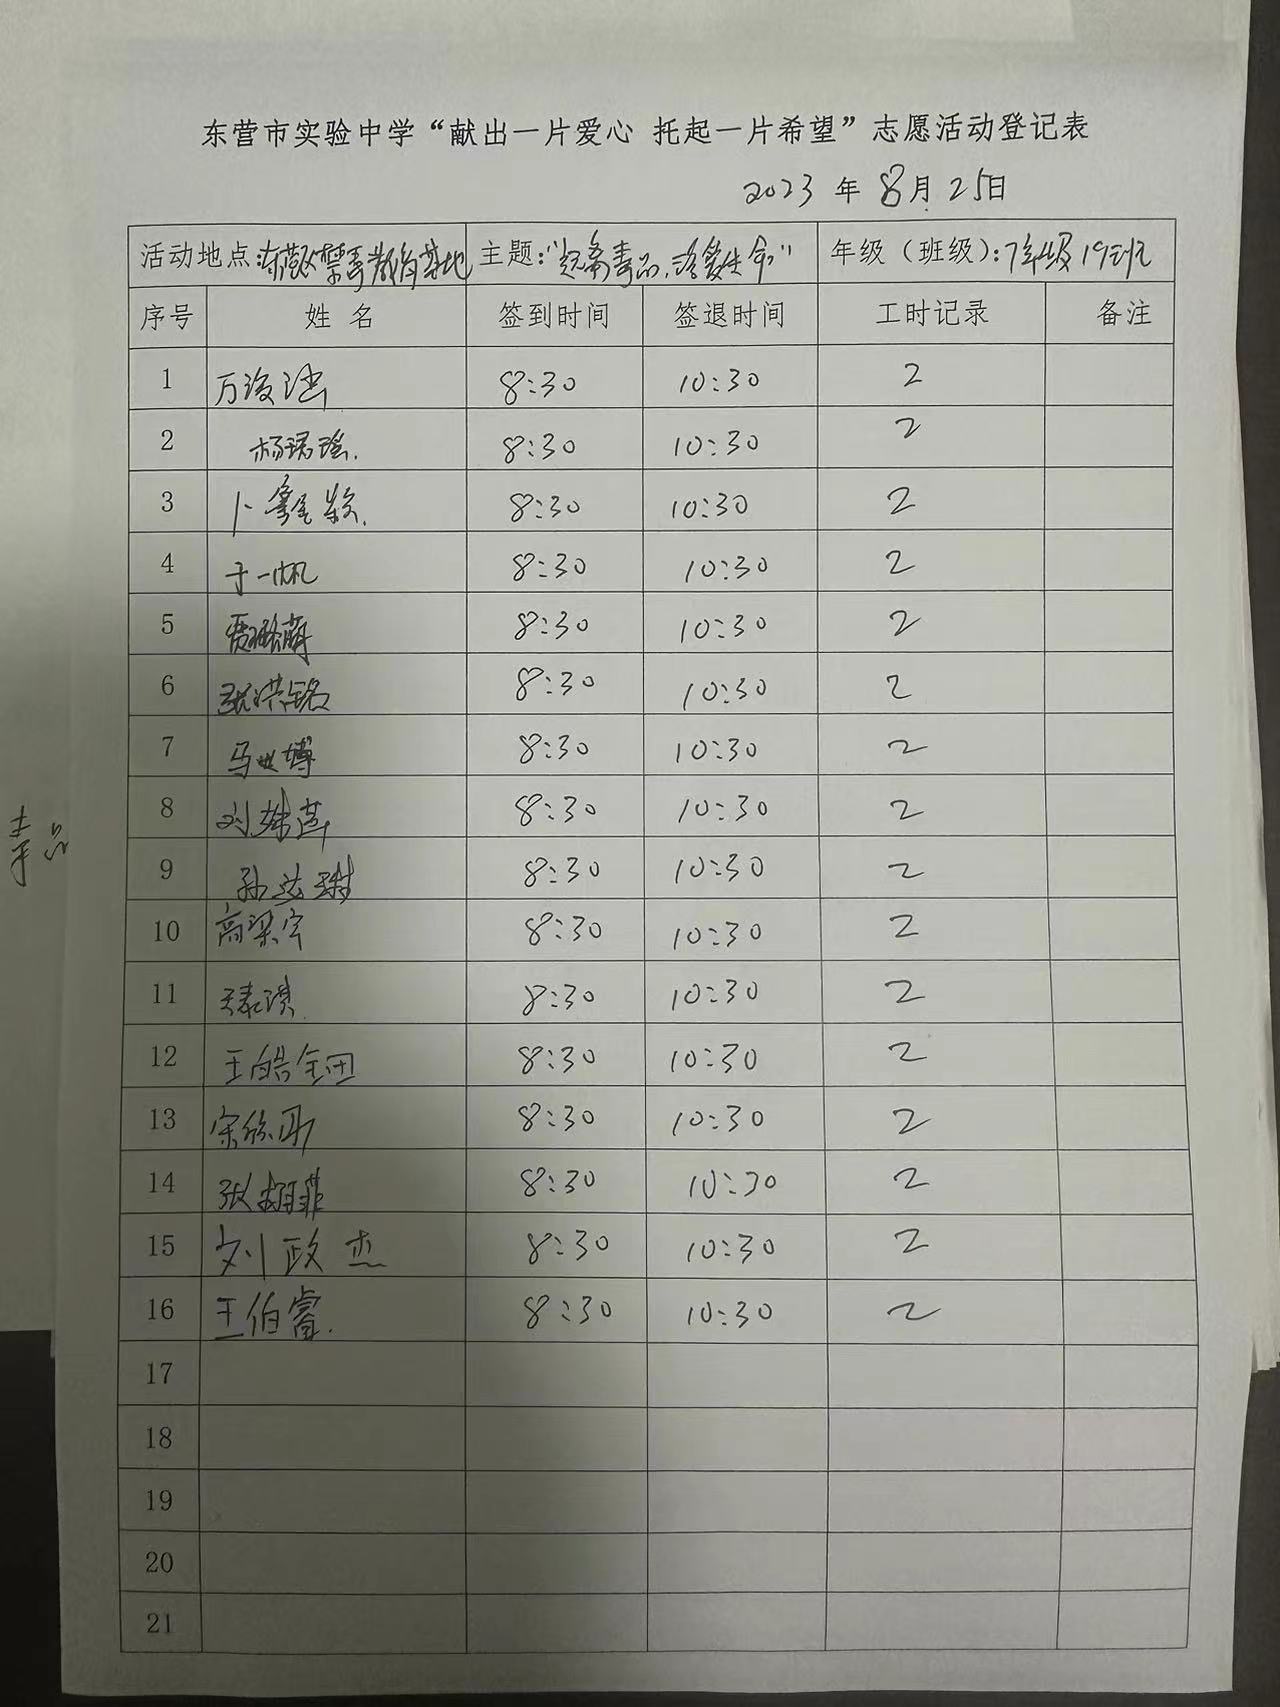 东营市实验中学“献出一片爱心 托起一片希望”志愿活动登记表
2023 年 8月 25日
活动地点:东营区禁毒教育基地 主题:“远离毒品,珍爱生命” 年级（班级）:7年级19班
序号 姓 名 签到时间 签退时间 工时记录 备注
1 8:30 10:30 2
2 杨珺瑶. 8:30 10:30 2
3 卜鑫 8:30 10:30 2
4 于一帆 8:30 10:30 2
5 贾 萌 8:30 10:30 2
6 张洪铭 8:30 10:30 2
7 马世博 8:30 10:30 2
8 刘姝 8:30 10:30 2
9 孙 8:30 10:30 2
10 高梁宇 8:30 10:30 2
11 琪. 8:30 10:30 2
12 王皓 8:30 10:30 2
13 宋 8:30 10:30 2
14 张栩菲 8:30 10:30 2
15 刘政杰 8:30 10:30 2
16 王伯睿. 8:30 10:30 2
17
18
19
20
21
毒品